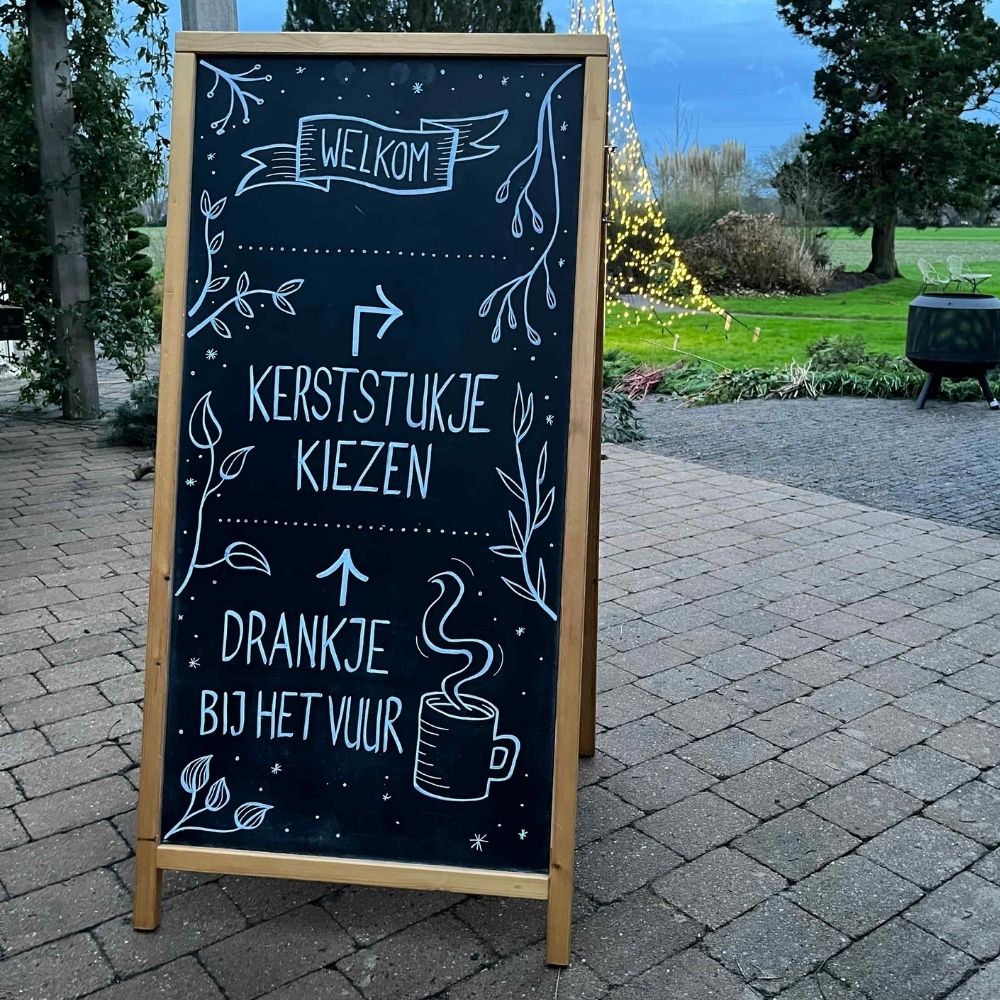 WELKOM
KERSTSTUKJE
KIEZEN
DRANKJE
BIJ HET VUUR